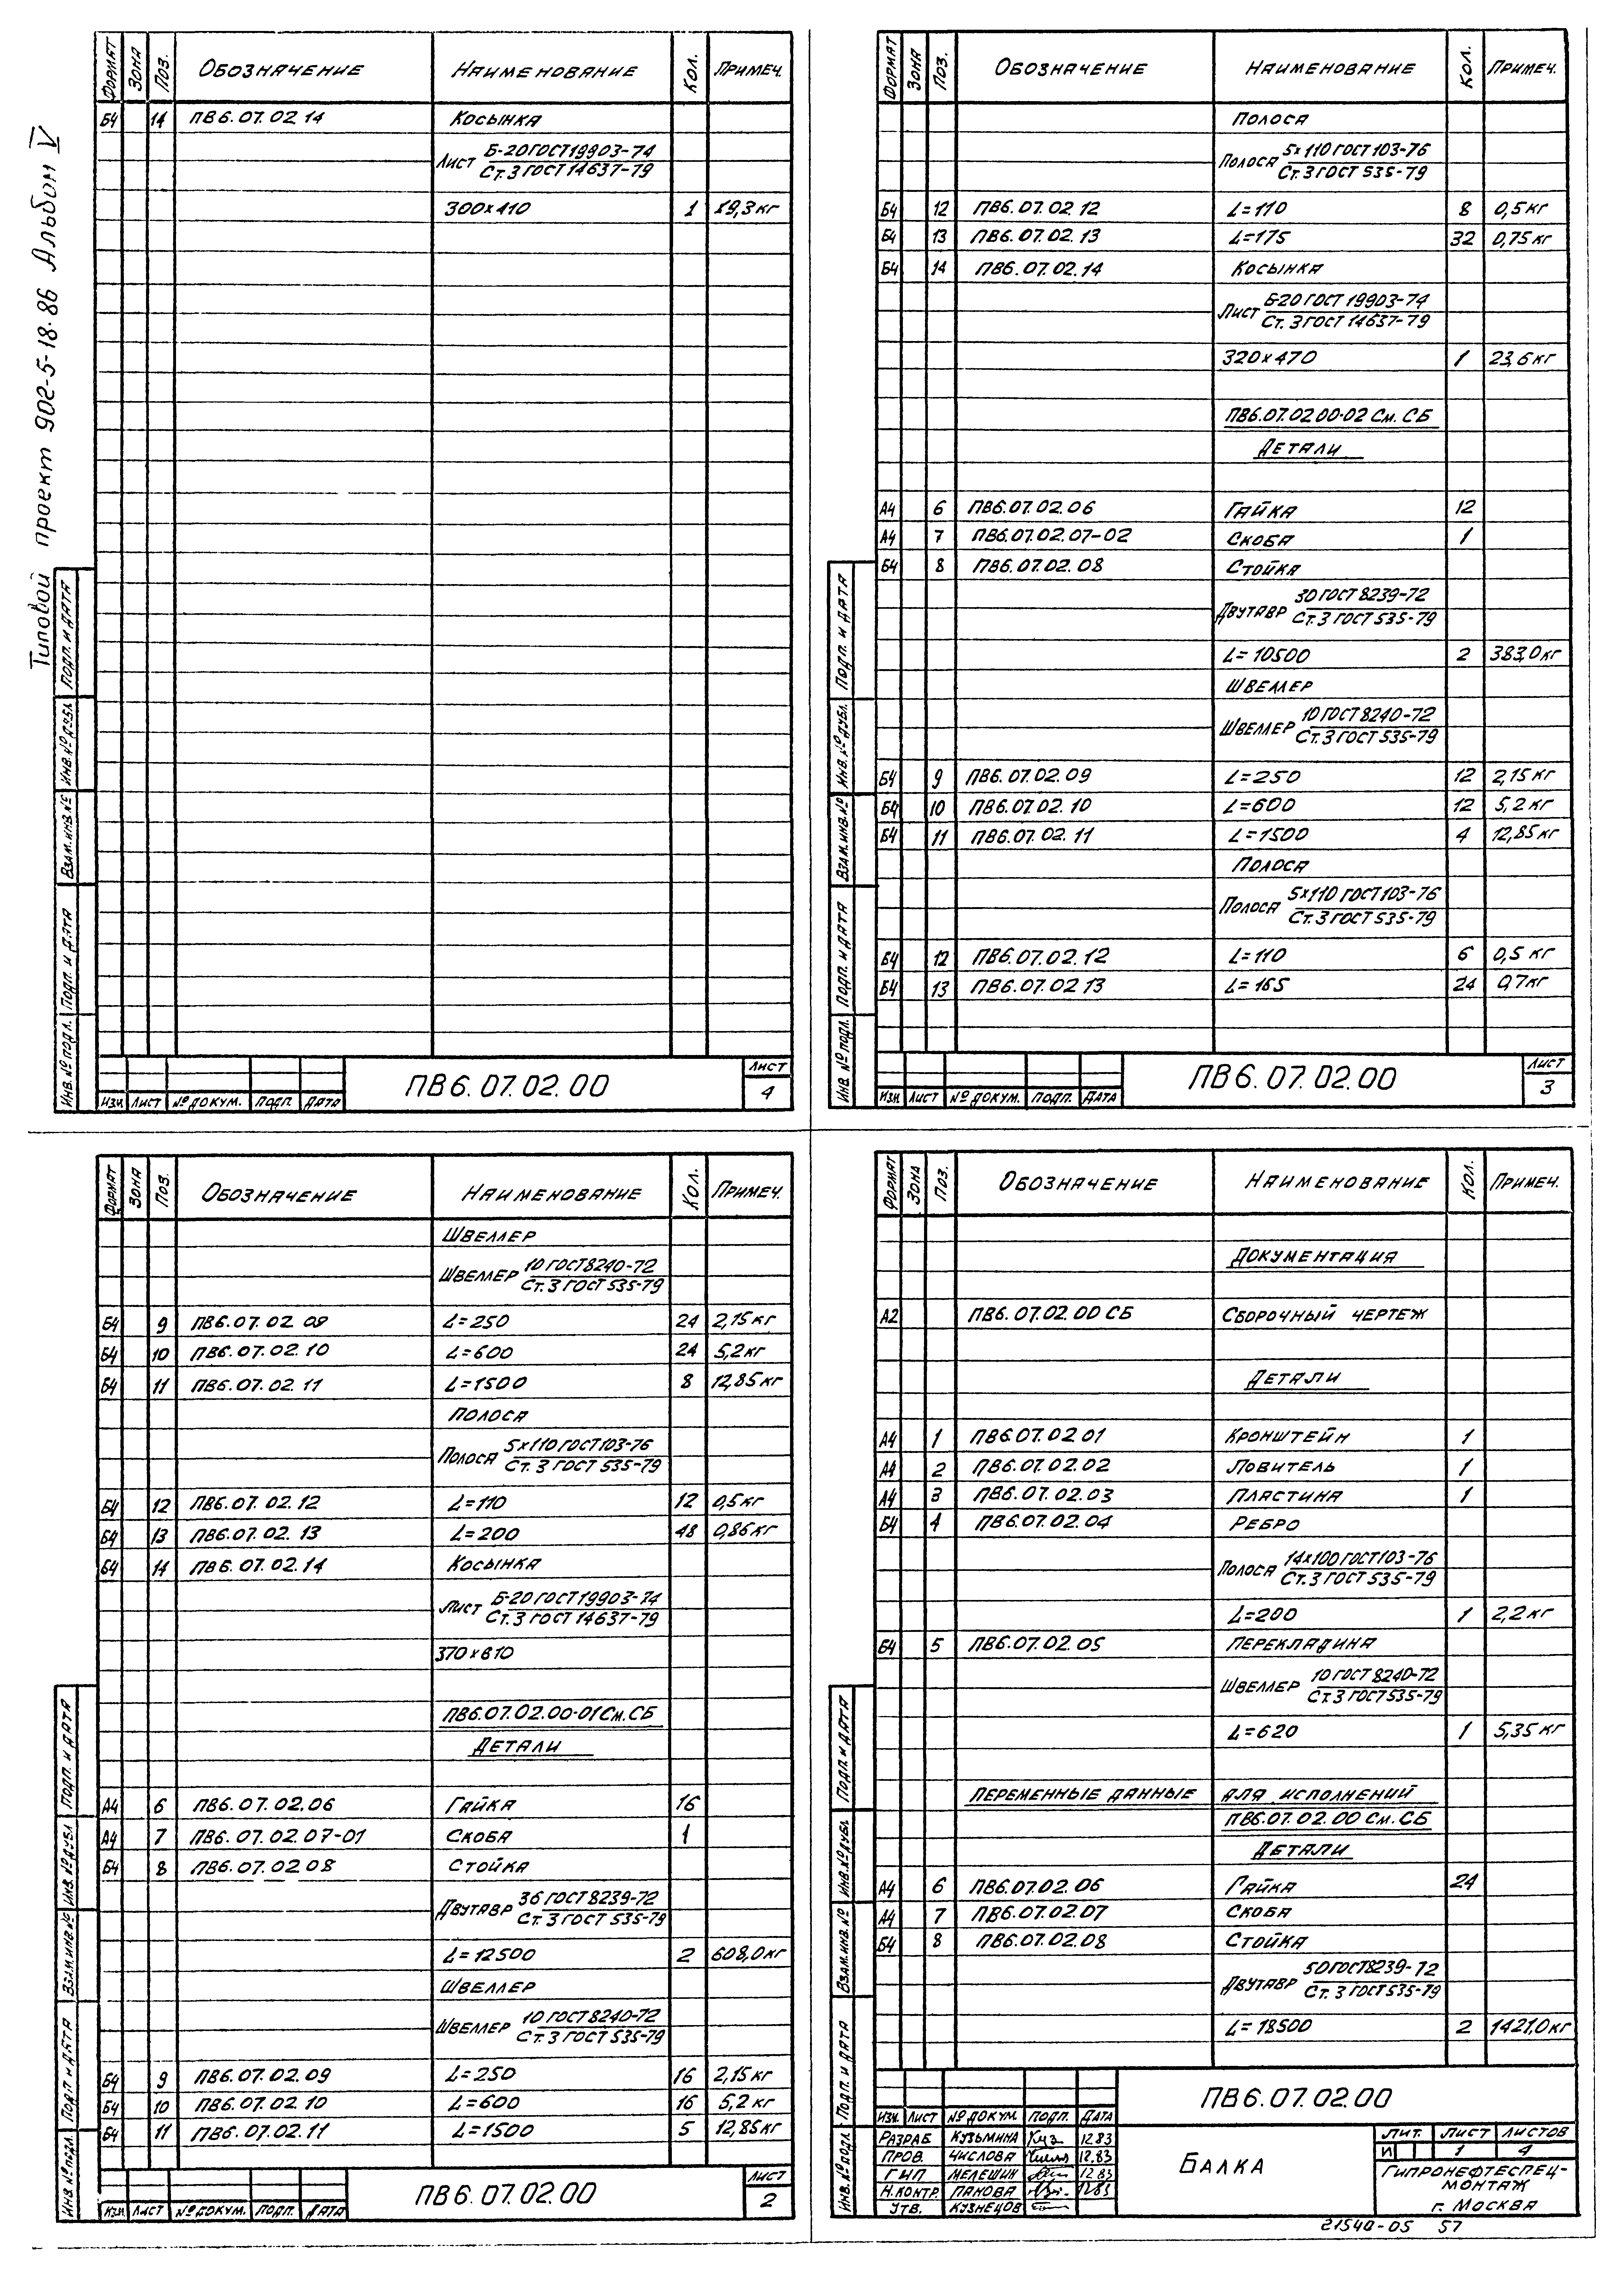 Типовой проект 902-5-18.86 Альбом V
ФОРМАТ ЗОНА ПОЗ. ОБОЗНАЧЕНИЕ НАИМЕНОВАНИЕ КОЛ. ПРИМЕЧ.
Б4 14 ПВ6.07.02.14 КОСЫНКА
ЛИСТ Б-20 ГОСТ 19903-74
СТ.3 ГОСТ 14637-79
300х410 1 19,3 кг
ПОДП. И ДАТА
ИНВ.№ ДУБЛ.
ВЗАМ.ИНВ.№
ПОДП. И ДАТА
ИНВ.№ ПОДЛ.
ИЗМ. ЛИСТ № ДОКУМ. ПОДП. ДАТА
ПВ6.07.02.00
ЛИСТ
4
ФОРМАТ ЗОНА ПОЗ. ОБОЗНАЧЕНИЕ НАИМЕНОВАНИЕ КОЛ. ПРИМЕЧ.
ПОЛОСА
ПОЛОСА 5х110 ГОСТ 103-76
СТ.3 ГОСТ 535-79
Б4 12 ПВ6.07.02.12 L=110 8 0,5 кг
Б4 13 ПВ6.07.02.13 L=175 32 0,75 кг
Б4 14 ПВ6.07.02.14 КОСЫНКА
ЛИСТ Б-20 ГОСТ 19903-74
СТ.3 ГОСТ 14637-79
320х470 1 23,6 кг
ПВ6.07.02.00-02 СМ. СБ
ДЕТАЛИ
А4 6 ПВ6.07.02.06 ГАЙКА 12
А4 7 ПВ6.07.02.07-02 СКОБА 1
Б4 8 ПВ6.07.02.08 СТОЙКА
ДВУТАВР 30 ГОСТ 8239-72
СТ.3 ГОСТ 535-79
L=10500 2 383,0 кг
ШВЕЛЛЕР
ШВЕЛЛЕР 10 ГОСТ 8240-72
СТ.3 ГОСТ 535-79
Б4 9 ПВ6.07.02.09 L=250 12 2,15 кг
Б4 10 ПВ6.07.02.10 L=600 12 5,2 кг
Б4 11 ПВ6.07.02.11 L=1500 4 12,85 кг
ПОЛОСА
ПОЛОСА 5х110 ГОСТ 103-76
СТ.3 ГОСТ 535-79
Б4 12 ПВ6.07.02.12 L=110 6 0,5 кг
Б4 13 ПВ6.07.02 13 L=165 24 0,7 кг
ПОДП. И ДАТА
ИНВ.№ ДУБЛ.
ВЗАМ.ИНВ.№
ПОДП. И ДАТА
ИНВ. № ПОДЛ.
ИЗМ ЛИСТ № ДОКУМ. ПОДП. ДАТА
ПВ6.07.02.00
ЛИСТ
3
ФОРМАТ ЗОНА ПОЗ. ОБОЗНАЧЕНИЕ НАИМЕНОВАНИЕ КОЛ. ПРИМЕЧ.
ШВЕЛЛЕР
ШВЕЛЛЕР 10 ГОСТ 8240-72
СТ.3 ГОСТ 535-79
Б4 9 ПВ6.07.02 09 L=250 24 2,15 кг
Б4 10 ПВ6.07.02.10 L=600 24 5,2 кг
Б4 11 ПВ6.07.02.11 L=1500 8 12,85 кг
ПОЛОСА
ПОЛОСА 5х110 ГОСТ 103-76
СТ.3 ГОСТ 535-79
Б4 12 ПВ6.07.02.12 L=110 12 0,5 кг
Б4 13 ПВ6.07.02.13 L=200 48 0,86 кг
Б4 14 ПВ6.07.02.14 КОСЫНКА
ЛИСТ Б-20 ГОСТ 19903-74
СТ.3 ГОСТ 14637-79
370х610
ПВ6.07.02.00-01 СМ. СБ
ДЕТАЛИ
А4 6 ПВ6.07.02.06 ГАЙКА 16
А4 7 ПВ6.07.02 07-01 СКОБА 1
Б4 8 ПВ6.07.02 08 СТОЙКА
ДВУТАВР 36 ГОСТ 8239-72
СТ.3 ГОСТ 535-79
L=12500 2 608,0 кг
ШВЕЛЛЕР
ШВЕЛЛЕР 10 ГОСТ 8240-72
СТ.3 ГОСТ 535-79
Б4 9 ПВ6.07.02.09 L=250 16 2,15 кг
Б4 10 ПВ6.07.02 10 L=600 16 5,2 кг
Б4 11 ПВ6.07.02.11 L=1500 5 12,85 кг
ПОДП. И ДАТА
ИНВ.№ ДУБЛ
ВЗАМ.ИНВ.№
ПОДП И ДАТА
ИНВ.№ ПОДЛ.
ИЗМ ЛИСТ № ДОКУМ. ПОДП. ДАТА
ПВ6.07.02.00
ЛИСТ
2
ФОРМАТ ЗОНА ПОЗ. ОБОЗНАЧЕНИЕ НАИМЕНОВАНИЕ КОЛ. ПРИМЕЧ.
ДОКУМЕНТАЦИЯ
А2 ПВ6.07.02.00 СБ СБОРОЧНЫЙ ЧЕРТЕЖ
ДЕТАЛИ
А4 1 ПВ6.07.02 01 КРОНШТЕЙН 1
А4 2 ПВ6.07.02.02 ЛОВИТЕЛЬ 1
А4 3 ПВ6.07.02.03 ПЛАСТИНА 1
Б4 4 ПВ6.07.02.04 РЕБРО
ПОЛОСА 14х100 ГОСТ 103-76
СТ.3 ГОСТ 535-79
L=200 1 2,2 кг
Б4 5 ПВ6.07.02.05 ПЕРЕКЛАДИНА
ШВЕЛЛЕР 10 ГОСТ 8240-72
СТ.3 ГОСТ 535-79
L=620 1 5,35 кг
ПЕРЕМЕННЫЕ ДАННЫЕ ДЛЯ ИСПОЛНЕНИЙ
ПВ6.07.02.00 СМ. СБ
ДЕТАЛИ
А4 6 ПВ6.07.02.06 ГАЙКА 24
А4 7 ПВ6.07.02.07 СКОБА
Б4 8 ПВ6.07.02.08 СТОЙКА
ДВУТАВР 50 ГОСТ 8239-72
СТ.3 ГОСТ 535-79
L=18500 2 1421,0 кг
ПОДП. И ДАТА
ИНВ.№ ДУБЛ.
ВЗАМ.ИНВ.№
ПОДП. И ДАТА
ИНВ.№ ПОДЛ.
ПВ6.07.02.00
ИЗМ. ЛИСТ № ДОКУМ. ПОДП. ДАТА
РАЗРАБ. КУЗЬМИНА 12.83
ПРОВ. ЧИСЛОВА 12.83
ГИП МЕЛЕШИН 12.83
Н.КОНТР. ПАНОВА 12.83
УТВ. КУЗНЕЦОВ
БАЛКА
ЛИТ. ЛИСТ ЛИСТОВ
И 1 4
ГИПРОНЕФТЕСПЕЦ-
МОНТАЖ
г. МОСКВА
21540-05 57